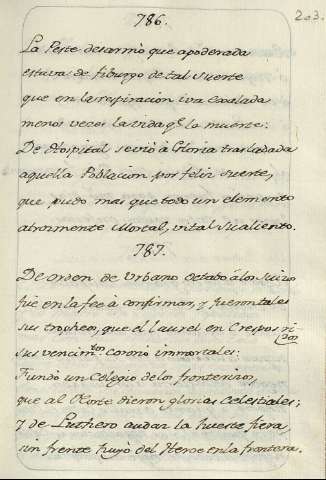 786.
203.
La Peste desarmò que apoderada
estava de fiburgo de tal suerte
que en la respiracion iva exalada
menos veces la vida q.e la muerte:
De Hospital seviò à Gloria trasladada
aquella Poblacion, por feliz suerte,
que pudo mas que todo un elemento
atrozmente Mortal, vital su aliento.
787.
De orden de Urbano Octabo á los Suizos
fuè en la fee à confirmar, y fueron tales
sus tropheos, que el laurel en Crespos rizos
sus vencim.tos coronò immortales:
Fundò un Colegio de los fronterizos,
que al Norte dieron glorias Celestiales;
y de Luthero audaz la hueste fiera,
sin frente huyò del Heroe en la frontera.